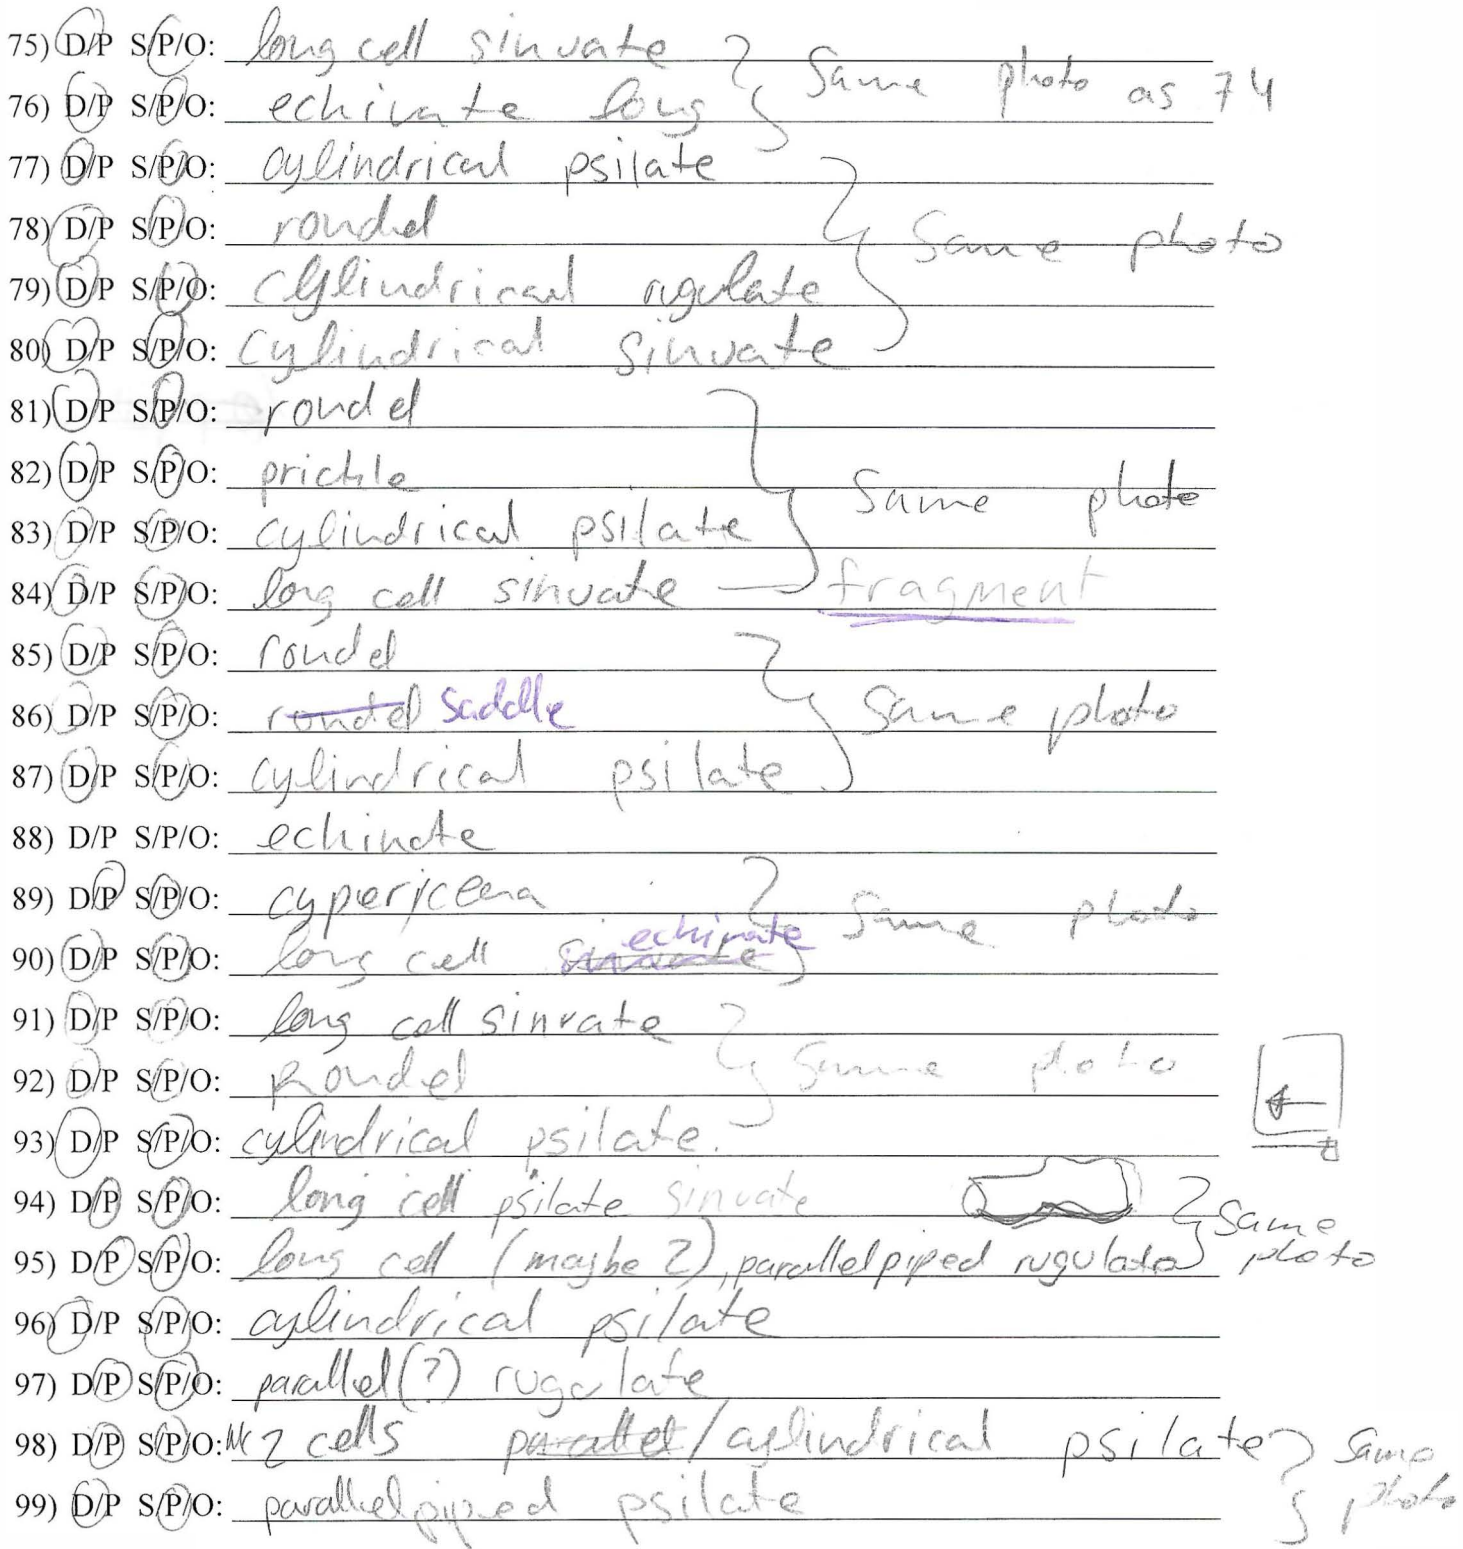 75) D/P S/P/O: long cell sinuate
Same photo as 74
76) D/P S/P/O: echinate long
77) D/P S/P/O: cylindrical psilate
78) D/P S/P/O: rondel
Same photo
79) D/P S/P/O: cylindrical rugulate
80) D/P S/P/O: cylindrical sinuate
81) D/P S/P/O: rondel
82) D/P S/P/O: prickle
Same photo
83) D/P S/P/O: cylindrical psilate
84) D/P S/P/O: long cell sinuate — fragment
85) D/P S/P/O: rondel
86) D/P S/P/O: rondel saddle
Same photo
87) D/P S/P/O: cylindrical psilate
88) D/P S/P/O: echinate
89) D/P S/P/O:
Same photo
90) D/P S/P/O: long cell sinuate echinate
91) D/P S/P/O: long cell sinuate
92) D/P S/P/O: Rondel
Same photo
93) D/P S/P/O: cylindrical psilate.
94) D/P S/P/O: long cell psilate sinuate
Same photo
95) D/P S/P/O: long cell (maybe ?), parallelpiped rugulate
96) D/P S/P/O: cylindrical psilate
97) D/P S/P/O: parallel(?) rugulate
98) D/P S/P/O: 2 cells parallel / cylindrical psilate
Same photo
99) D/P S/P/O: parallelpiped psilate